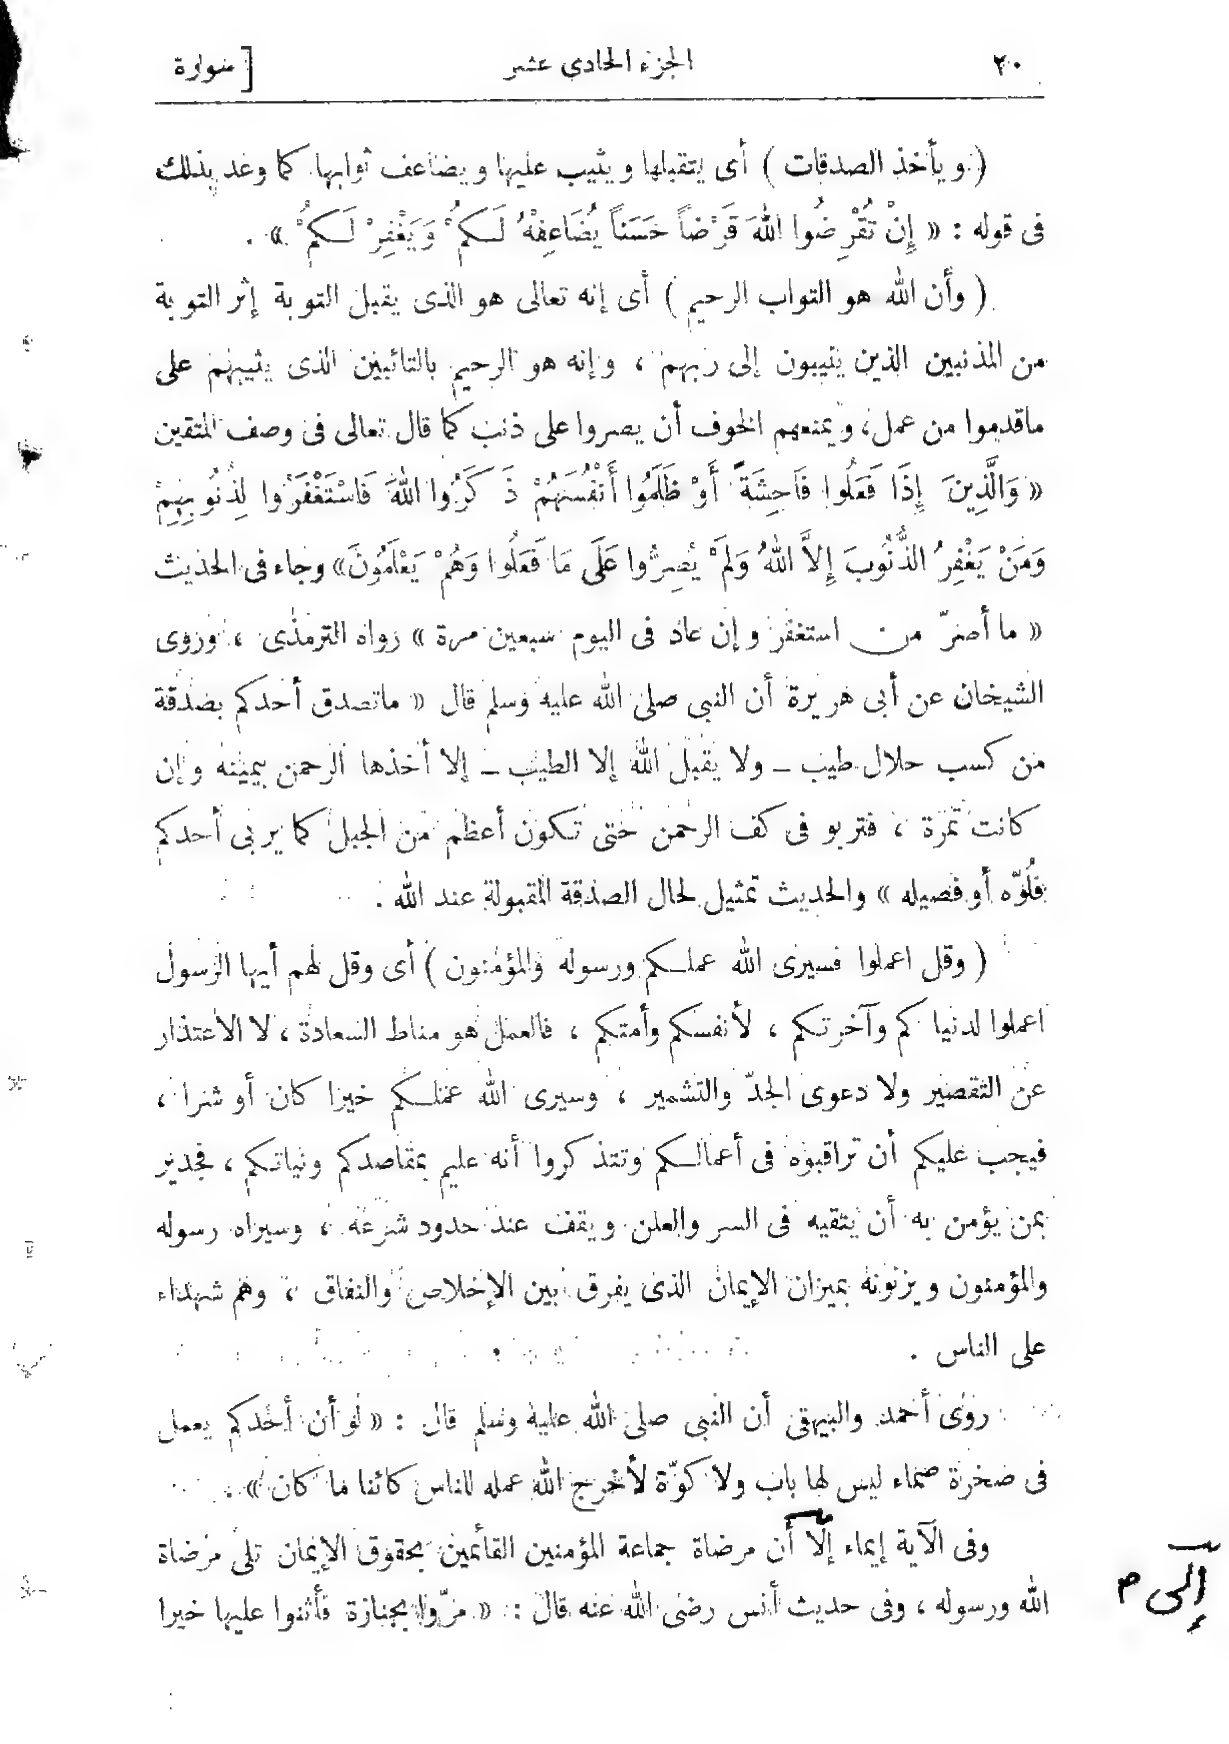 ٢٠ الجزء الحادى عشر [ سورة
( ويأخذ الصدقات ) أى يتقبلها ويثيب عليها ويضاعف ثوابها كما وعد بذلك
فى قوله : « إِنْ تُقْرِضُوا اللهَ قَرْضاً حَسَناً يُضَاعِفْهُ لَكُمْ وَيَغْفِرْ لَكُمْ » .
( وأن الله هو التواب الرحيم ) أى إنه تعالى هو الذى يقبل التوبة إثر التوبة
من المذنبين الذين ينيبون إلى ربهم ، وإنه هو الرحيم بالتائبين الذى يثيبهم على
ماقدموا من عمل، ويمنعهم الخوف أن يصروا على ذنب كما قال تعالى فى وصف المتقين
« وَالَّذِينَ إِذَا فَعَلُوا فَاحِشَةً أَوْ ظَلَمُوا أَنْفُسَهُمْ ذَكَرُوا اللهَ فَاسْتَغْفَرُوا لِذُنُوبِهِمْ
وَمَنْ يَغْفِرُ الذُّنُوبَ إِلاَّ اللهُ وَلَمْ يُصِرُّوا عَلَى مَا فَعَلُوا وَهُمْ يَعْلَمُونَ» وجاء فى الحديث
« ما أصرّ من استغفر وإن عاد فى اليوم سبعين مرة » رواه الترمذى ، وروى
الشيخان عن أبى هريرة أن النبى صلى الله عليه وسلم قال « ماتصدق أحدكم بصدقة
من كسب حلال طيب ــ ولا يقبل الله إلا الطيب ــ إلا أخذها الرحمن بيمينه وإن
كانت تمرة ، فتربو فى كف الرحمن حتى تكون أعظم من الجبل كما يربى أحدكم
فُلُوّه أو فصيله » والحديث تمثيل لحال الصدقة المقبولة عند الله .
( وقل اعملوا فسيرى الله عملكم ورسوله والمؤمنون ) أى وقل لهم أيها الرسول
اعملوا لدنياكم وآخرتكم ، لأنفسكم وأمتكم ، فالعمل هو مناط السعادة ، لا الاعتذار
عن التقصير ولا دعوى الجدّ والتشمير ، وسيرى الله عملكم خيرا كان أو شرا ،
فيجب عليكم أن تراقبوه فى أعمالكم وتتذكروا أنه عليم بمقاصدكم ونياتكم ، فجدير
بمن يؤمن به أن يتقيه فى السر والعلن ويقف عند حدود شرعه ، وسيراه رسوله
والمؤمنون ويزنونه بميزان الإيمان الذى يفرق بين الإخلاص والنفاق ، وهم شهداء
على الناس .
روى أحمد والبيهقى أن النبى صلى الله عليه وسلم قال : « لو أن أحدكم يعمل
فى صخرة صماء ليس لها باب ولا كوّة لأخرج الله عمله للناس كائنا ما كان » .
وفى الآية إيماء إلا أن مرضاة جماعة المؤمنين القائمين بحقوق الإيمان تلى مرضاة
الله ورسوله ، وفى حديث أنس رضى الله عنه قال : « مرّوا بجنازة فأثنوا عليها خيرا
إلى م